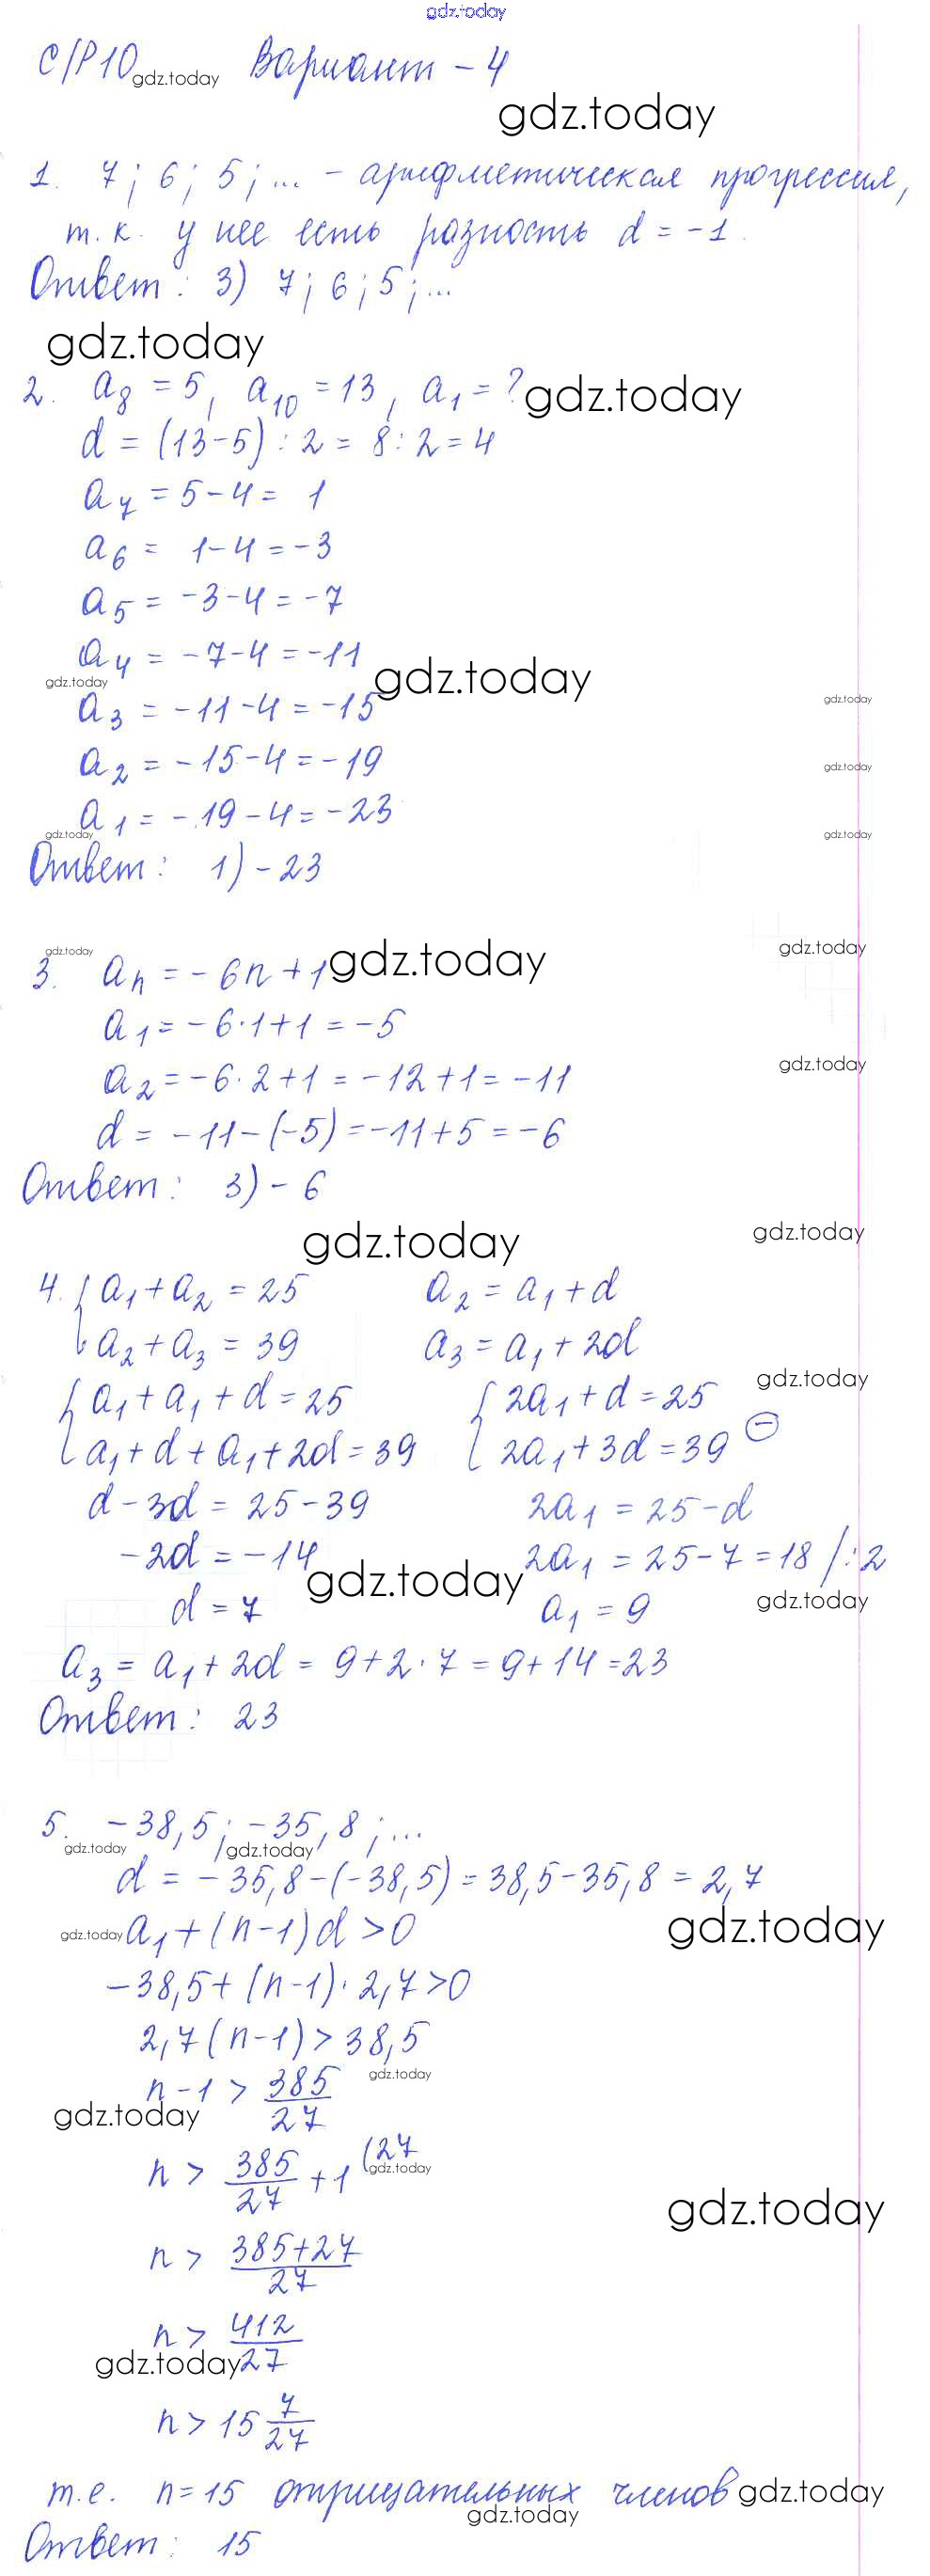 gdz.today
С/Р10 gdz.today Вариант – 4
gdz.today
1. 7; 6; 5; ... – арифметическая прогрессия,
т.к. у нее есть разность d = -1.
Ответ: 3) 7; 6; 5; ...
gdz.today
2. a₈ = 5, a₁₀ = 13, a₁ = ? gdz.today
d = (13-5) : 2 = 8 : 2 = 4
a₇ = 5-4 = 1
a₆ = 1-4 = -3
a₅ = -3-4 = -7
a₄ = -7-4 = -11
gdz.today gdz.today
a₃ = -11-4 = -15 gdz.today
a₂ = -15-4 = -19 gdz.today
a₁ = -19-4 = -23
gdz.today gdz.today
Ответ: 1) -23
gdz.today gdz.today gdz.today
3. aₙ = -6n+1
a₁ = -6·1+1 = -5
a₂ = -6·2+1 = -12+1 = -11 gdz.today
d = -11-(-5) = -11+5 = -6
Ответ: 3) -6
gdz.today gdz.today
4. { a₁+a₂ = 25 a₂ = a₁+d
a₂+a₃ = 39 a₃ = a₁+2d
{ a₁+a₁+d = 25 { 2a₁+d = 25 gdz.today
a₁+d+a₁+2d = 39 2a₁+3d = 39 ⊖
d-3d = 25-39 2a₁ = 25-d
-2d = -14 2a₁ = 25-7 = 18 /:2
gdz.today gdz.today
d = 7 a₁ = 9
a₃ = a₁+2d = 9+2·7 = 9+14 = 23
Ответ: 23
5. -38,5; -35,8; ...
gdz.today gdz.today
d = -35,8-(-38,5) = 38,5-35,8 = 2,7
gdz.today a₁+(n-1)d > 0 gdz.today
-38,5+(n-1)·2,7 > 0
2,7(n-1) > 38,5
n-1 > 385/27 gdz.today
gdz.today
n > 385/27 + 1 (27
gdz.today
gdz.today
n > 385+27/27
n > 412/27
gdz.today
n > 15 7/27
т.е. n = 15 отрицательных членов gdz.today
gdz.today
Ответ: 15